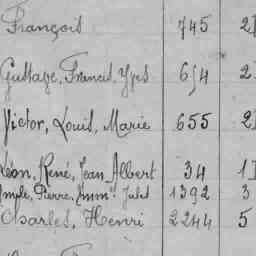 François 745 2
Gustave, Francis, Yves 654 2
Victor, Louis, Marie 655 2
Léon, René, Jean Albert 34 1
Pierre, Jules 1392 3
Charles, Henri 2244 5